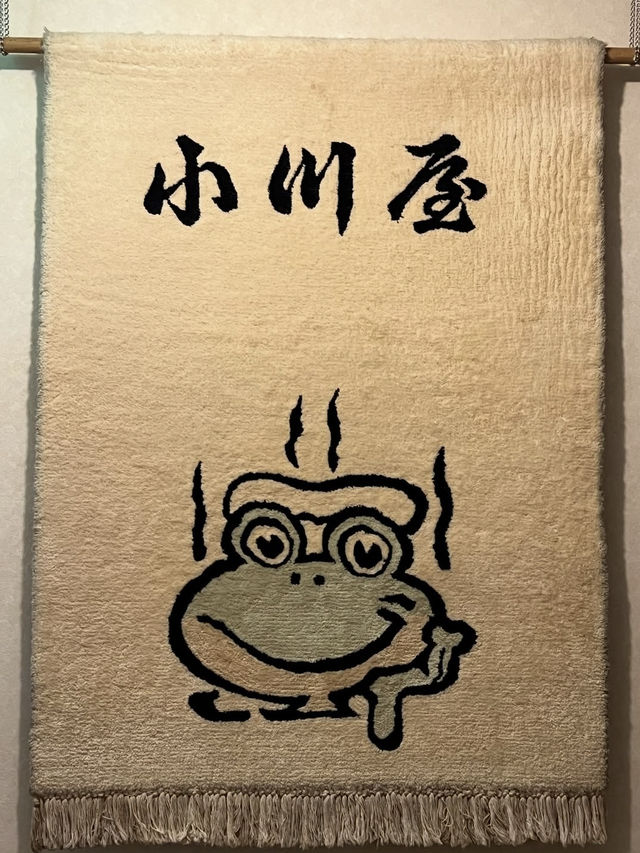 小川屋